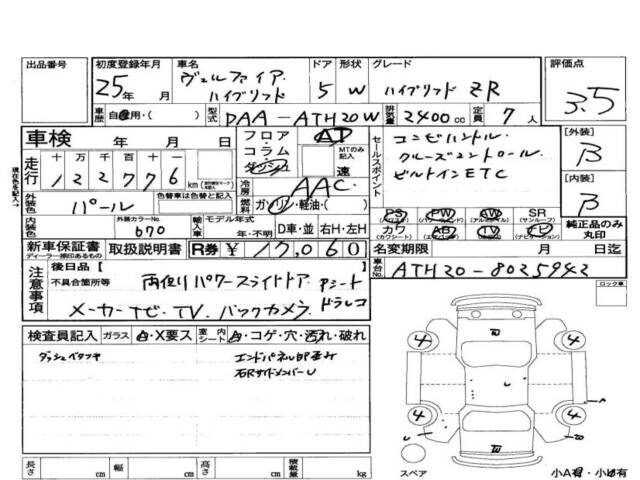 出品番号
初度登録年月
25年 月
車名
ヴェルファイア
ハイブリッド
ドア
5
形状
W
グレード
ハイブリッド ZR
評価点
3.5
車歴 自家用・( )
型式 DAA-ATH20W
排気量 2400 cc
定員 7人
車検 年 月 日
走行 十 万 千 百 十 一
122776 km
フロア
コラム
ダッシュ
AT
MTのみ記入
速
冷房 AAC
燃料 ガソリン・軽油・( )
セールスポイント
コンビハンドル
クルーズコントロール
ビルトインETC
[外装]
B
[内装]
B
外装色 パール
色替車は色替と記入
内装色
外装カラーNo.
070
輸入車
モデル年式
年・不明
D車・並
右H・左H
PS PW AW SR
(サンルーフ)
カワ AB TV ナビ
純正品のみ
丸印
現在色を記入→
新車保証書
ディーラー捺印あるもの
取扱説明書
R券 ¥17,060
名変期限 月 日迄
車台No. ATH20-8025942
注意事項
後日品[ ]
不具合箇所等
両側パワースライドドア Pシート
メーカーナビ・TV・バックカメラ ドラレコ
ロック車
検査員記入
ガラス
A・X要ス
室内シート
A・コゲ・穴・汚れ・破れ
ダッシュベタツキ
エンドパネル部歪み
右RサイドメンバーU
4 4
4 4
スペア
長さ cm 幅 cm 高さ cm 積載量 kg
小A有・小U有